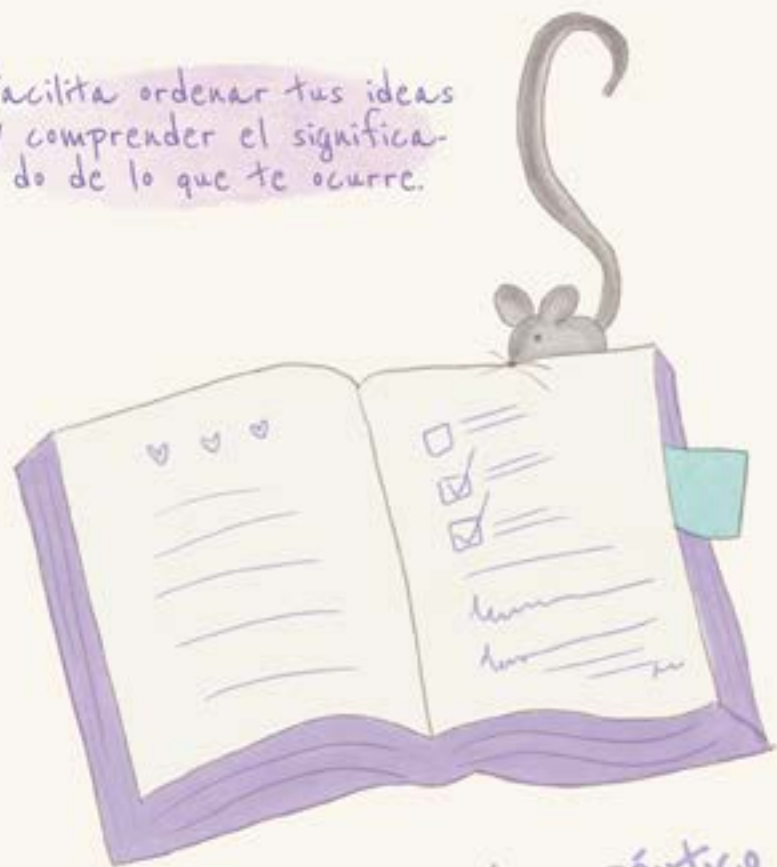 Facilita ordenar tus ideas
y comprender el significa-
do de lo que te ocurre.